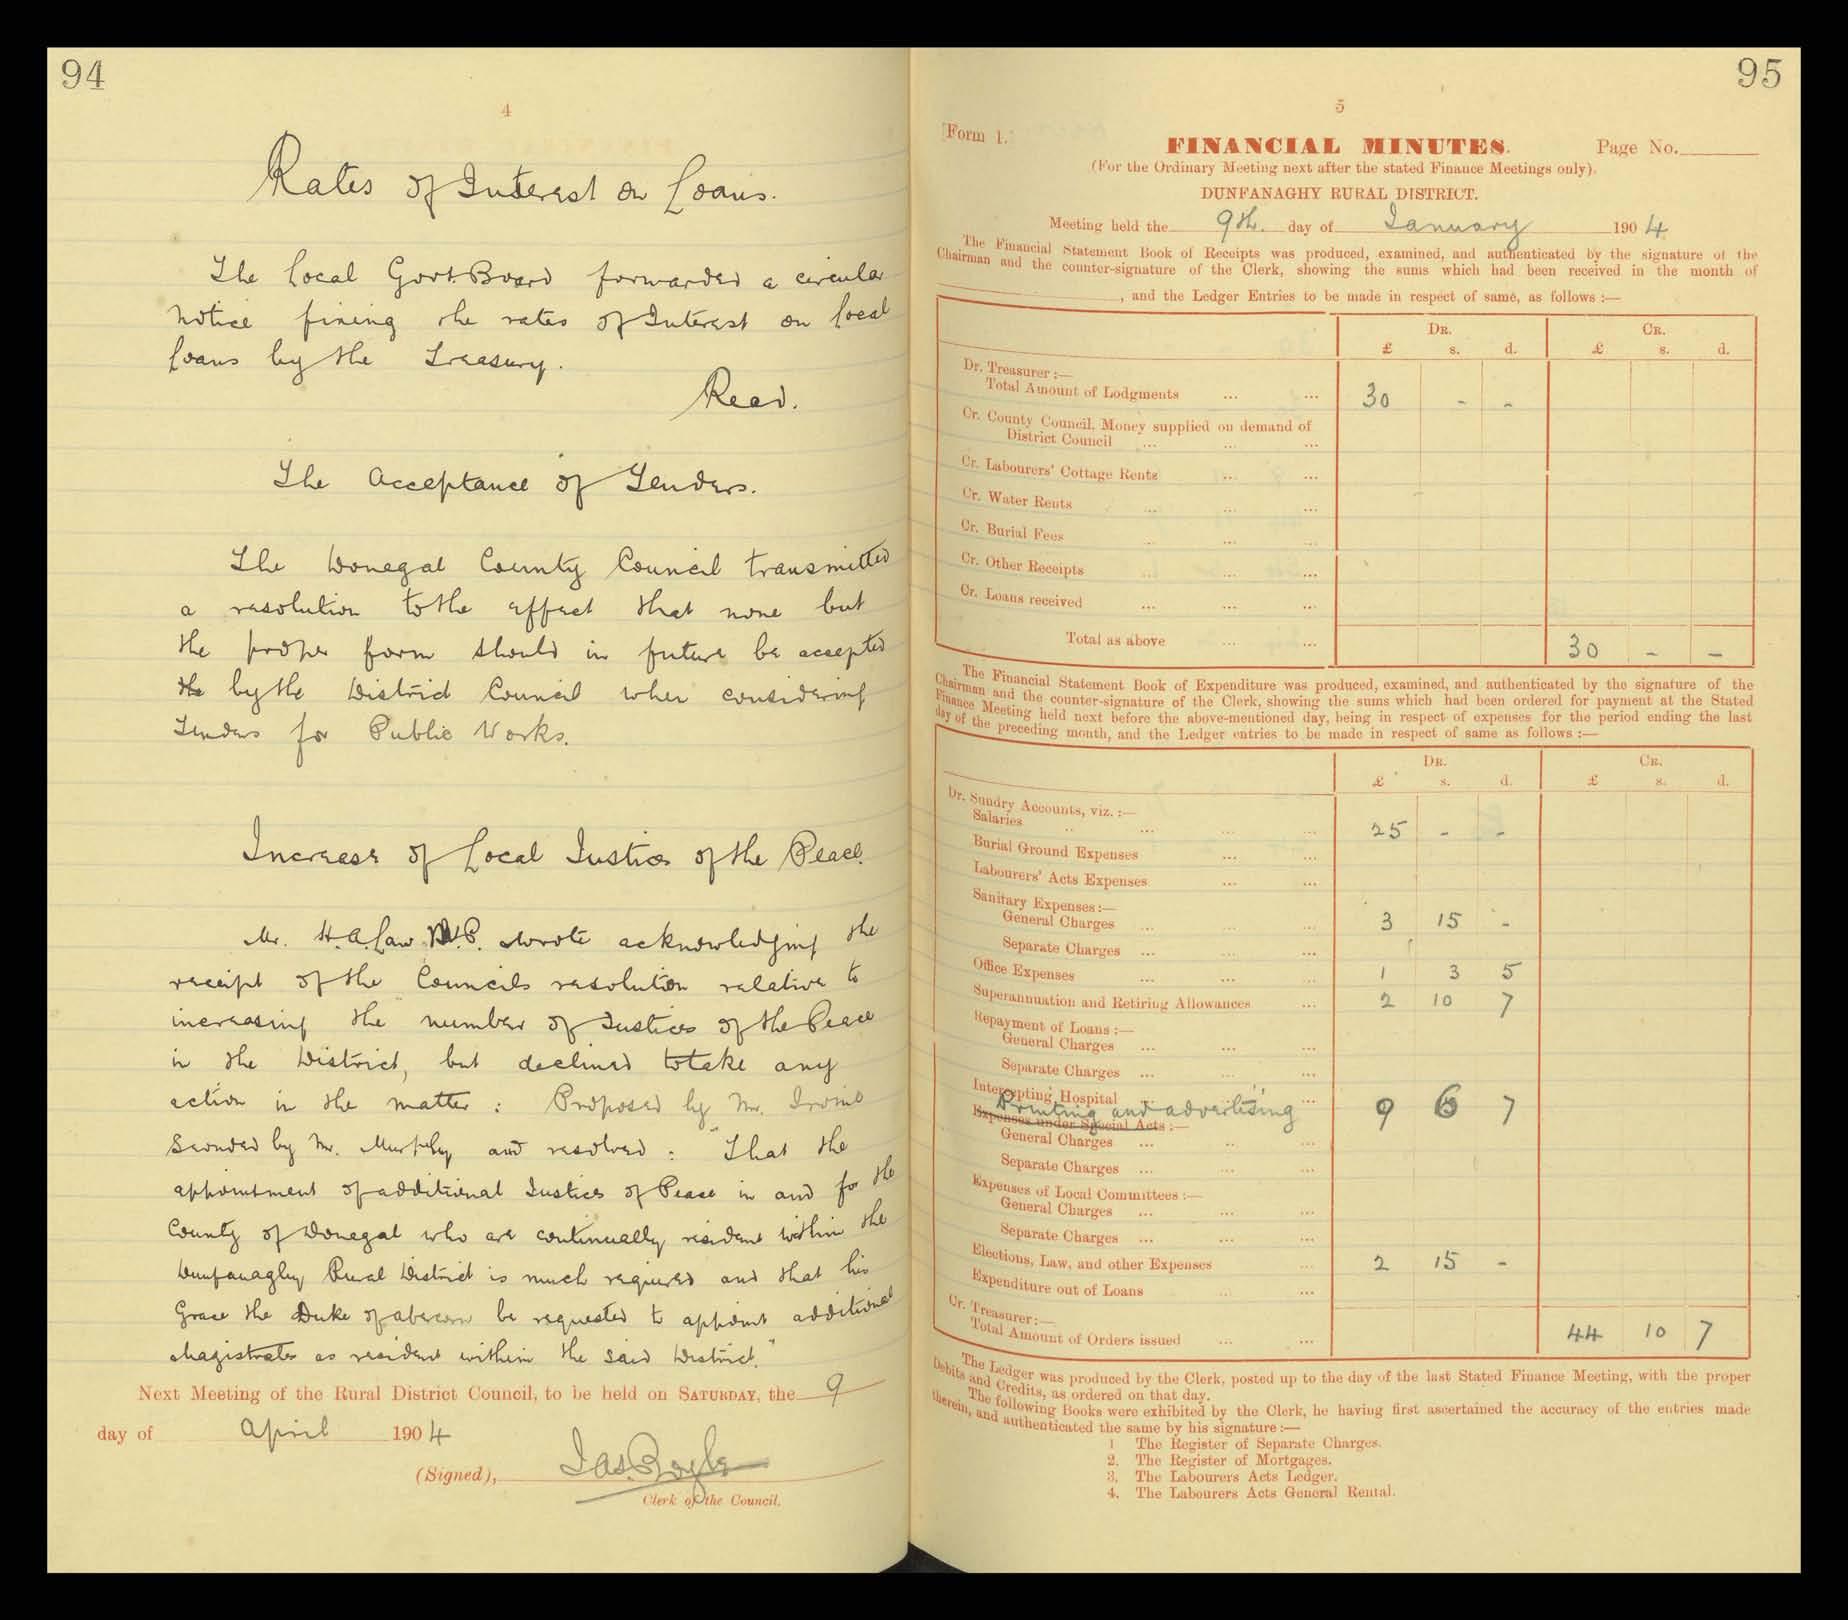 94
4
Rates of Interest on Loans.
The Local Govt. Board forwarded a circular
notice fixing the rates of Interest on local
loans by the Treasury.
Read.
The Acceptance of Tenders.
The Donegal County Council transmitted
a resolution to the effect that none but
the proper form should in future be accepted
the by the District Council when considering
Tenders for Public Works.
Increase of Local Justices of the Peace.
Mr. H.A. Law M.P. wrote acknowledging the
receipt of the Councils resolution relative to
increasing the number of Justices of the Peace
in the District, but declined to take any
action in the matter : Proposed by Mr. Irvine
Seconded by Mr. Murphy and resolved : "That the
appointment of additional Justices of Peace in and for the
County of Donegal who are continually resident within the
Dunfanaghy Rural District is much required and that his
Grace the Duke of Abercorn be requested to appoint additional
Magistrates as resident within the said District."
Next Meeting of the Rural District Council, to be held on SATURDAY, the 9
day of April 1904
(Signed), Jas. Boyle
Clerk of the Council.
95
5
[Form 1.]
FINANCIAL MINUTES.
Page No.
(For the Ordinary Meeting next after the stated Finance Meetings only).
DUNFANAGHY RURAL DISTRICT.
Meeting held the 9th. day of January 1904
The Financial Statement Book of Receipts was produced, examined, and authenticated by the signature of the
Chairman and the counter-signature of the Clerk, showing the sums which had been received in the month of
, and the Ledger Entries to be made in respect of same, as follows :—
DR. CR.
£ s. d. £ s. d.
Dr. Treasurer :—
Total Amount of Lodgments ... ... 30 - -
Cr. County Council, Money supplied on demand of
District Council ... ... ...
Cr. Labourers' Cottage Rents ... ...
Cr. Water Rents ... ... ...
Cr. Burial Fees ... ... ...
Cr. Other Receipts ... ... ...
Cr. Loans received ... ... ...
Total as above ... ... 30 - -
The Financial Statement Book of Expenditure was produced, examined, and authenticated by the signature of the
Chairman and the counter-signature of the Clerk, showing the sums which had been ordered for payment at the Stated
Finance Meeting held next before the above-mentioned day, being in respect of expenses for the period ending the last
day of the preceding month, and the Ledger entries to be made in respect of same as follows :—
DR. CR.
£ s. d. £ s. d.
Dr. Sundry Accounts, viz. :—
Salaries ... ... ... ... 25 - -
Burial Ground Expenses ... ...
Labourers' Acts Expenses ... ...
Sanitary Expenses :—
General Charges ... ... ... 3 15 -
Separate Charges ... ... ...
Office Expenses ... ... ... 1 3 5
Superannuation and Retiring Allowances ... 2 10 7
Repayment of Loans :—
General Charges ... ... ...
Separate Charges ... ... ...
Intercepting Hospital ... ... ...
Printing and advertising 9 6 7
Expenses under Special Acts :—
General Charges ... ... ...
Separate Charges ... ... ...
Expenses of Local Committees :—
General Charges ... ... ...
Separate Charges ... ... ...
Elections, Law, and other Expenses ... 2 15 -
Expenditure out of Loans ... ...
Cr. Treasurer :—
Total Amount of Orders issued ... ... 44 10 7
The Ledger was produced by the Clerk, posted up to the day of the last Stated Finance Meeting, with the proper
Debits and Credits, as ordered on that day.
The following Books were exhibited by the Clerk, he having first ascertained the accuracy of the entries made
therein, and authenticated the same by his signature :—
1 The Register of Separate Charges.
2. The Register of Mortgages.
3. The Labourers Acts Ledger.
4. The Labourers Acts General Rental.